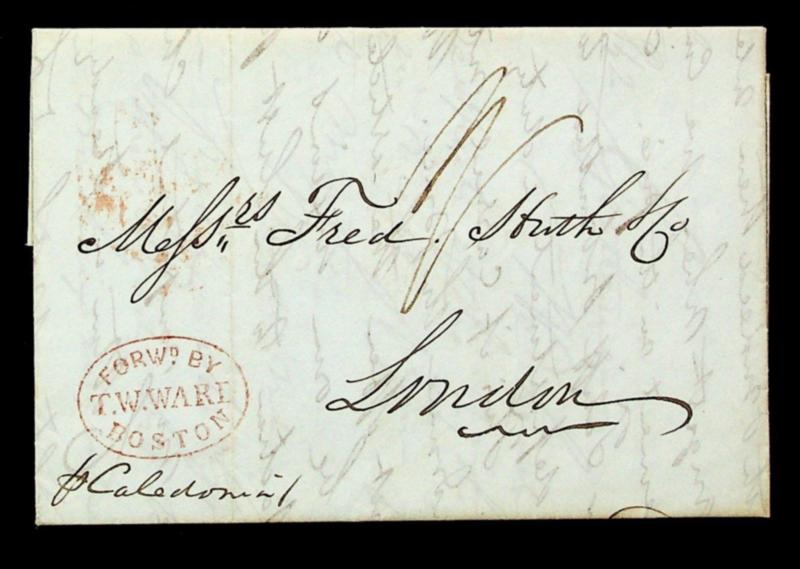 Mess.rs Fred. Huth & Co
London
FORWD BY
T.W.WARE
BOSTON
p Caledonia